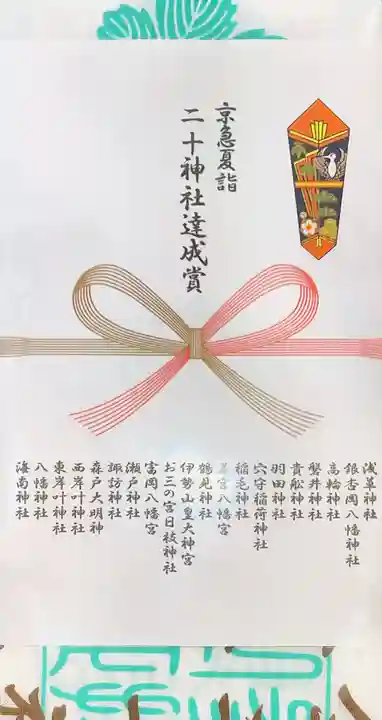 京急夏詣
二十神社達成賞
浅草神社
銀杏岡八幡神社
高輪神社
磐井神社
貴船神社
羽田神社
穴守稲荷神社
稲毛神社
若宮八幡宮
鶴見神社
伊勢山皇大神宮
お三の宮日枝神社
富岡八幡宮
瀬戸神社
諏訪神社
森戸大明神
西岸叶神社
東岸叶神社
八幡神社
海南神社